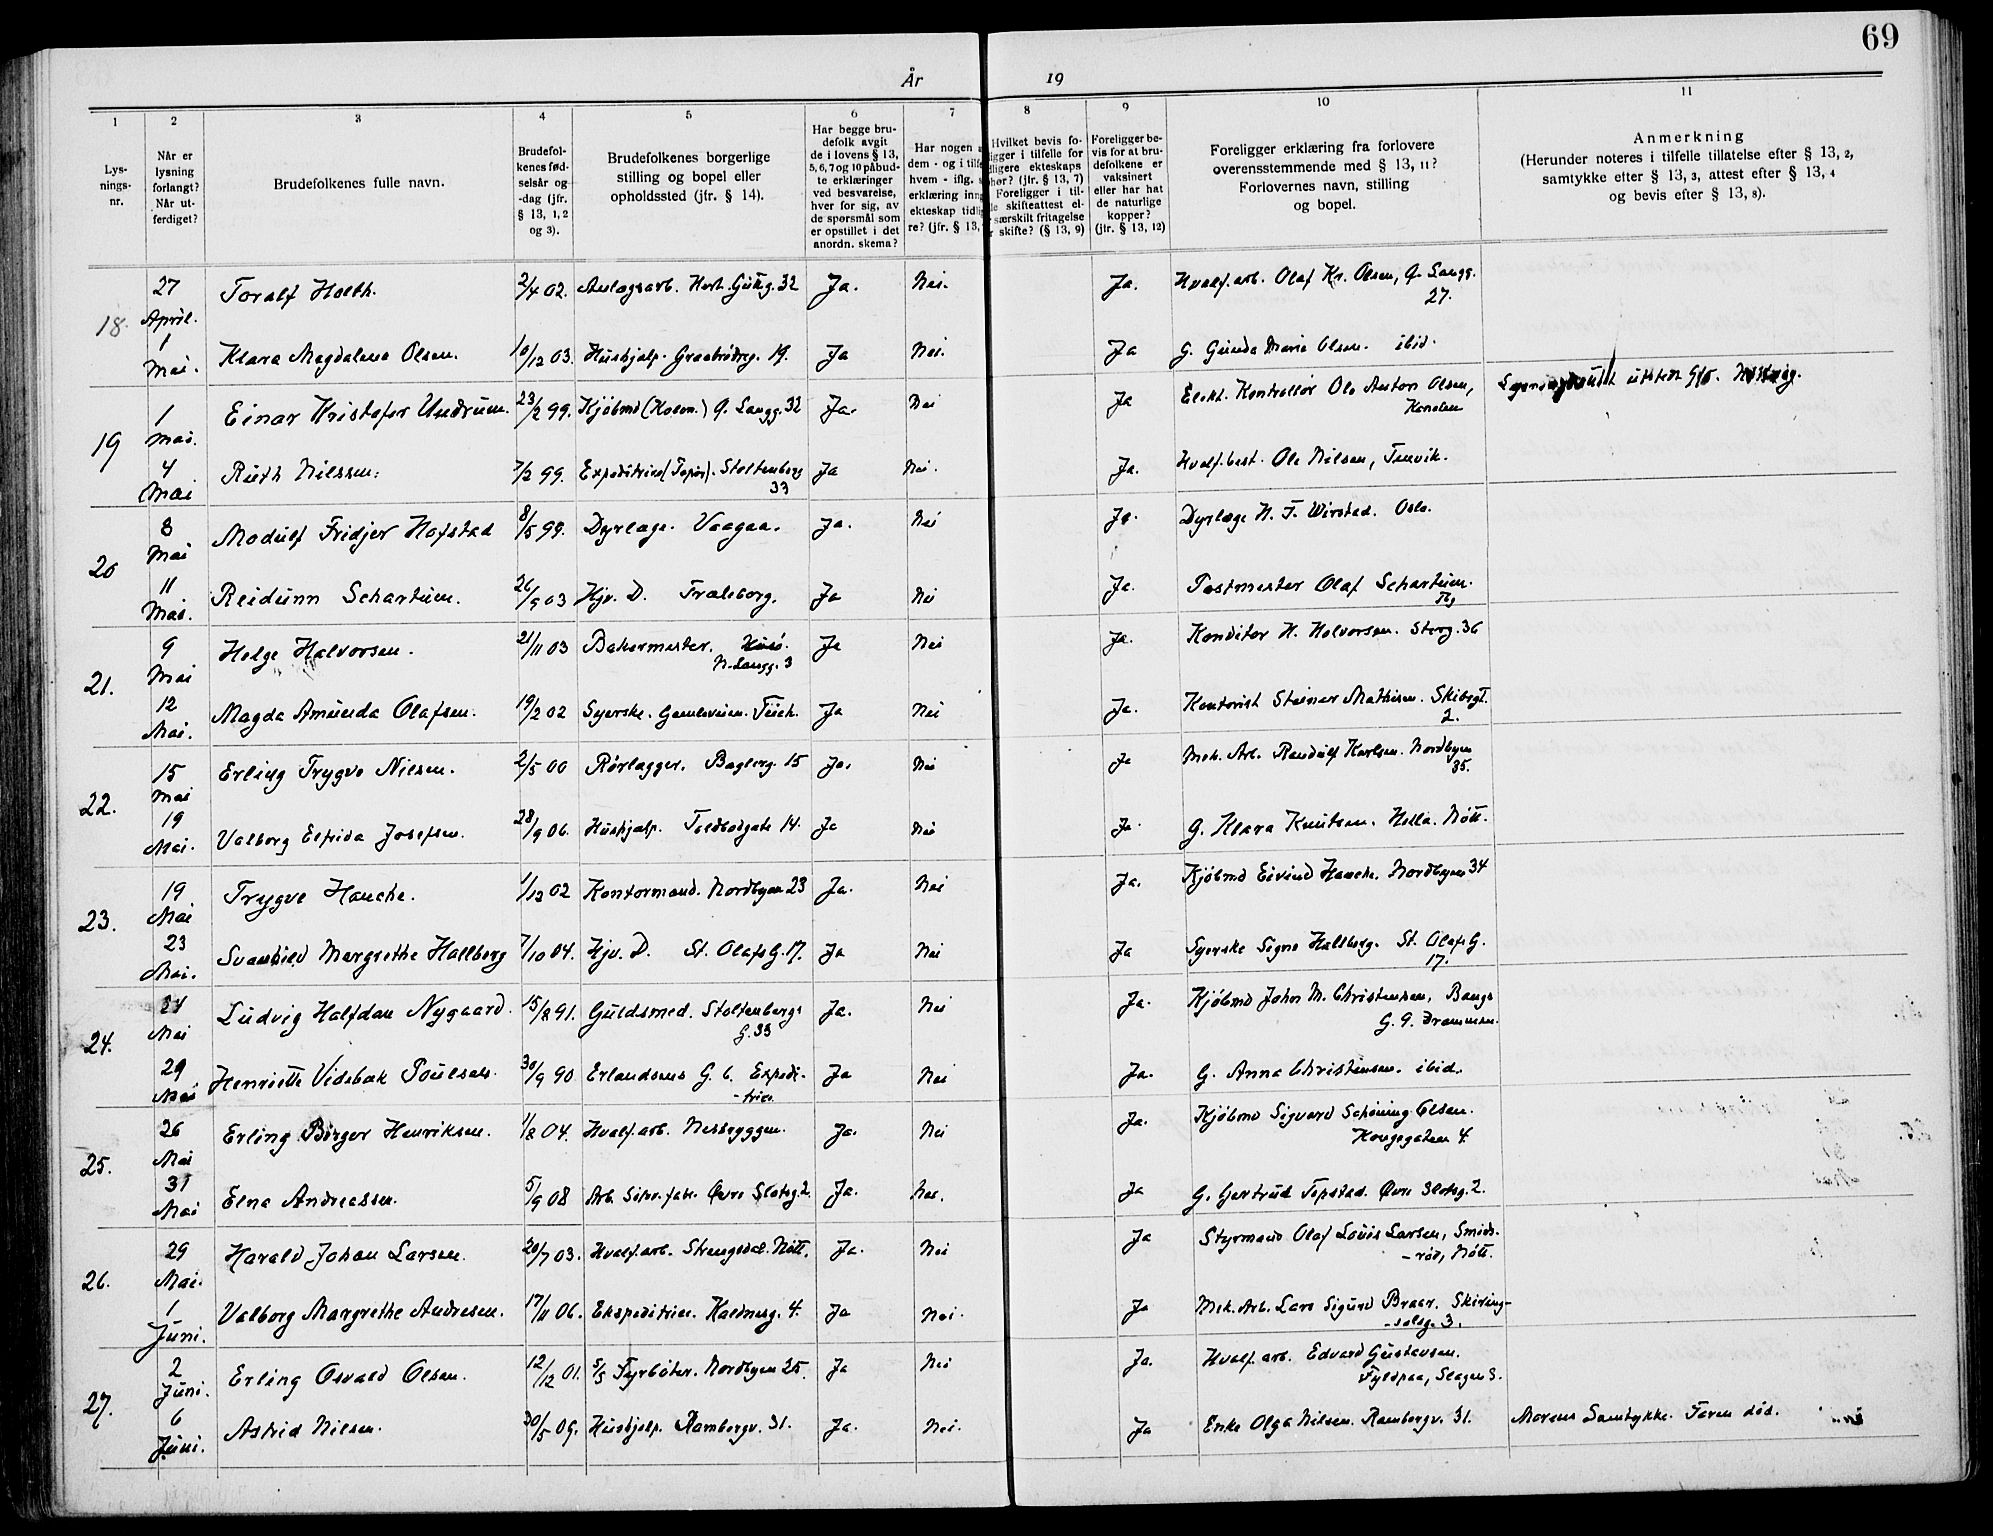 69
År 19
1 2 3 4 5 6 7 8 9 10 11
Lys-
nings-
nr.
Når er
lysning
forlangt?
Når ut-
ferdiget?
Brudefolkenes fulle navn.
Brudefol-
kenes fød-
selsår og
-dag (jfr.
§ 13, 1, 2
og 3).
Brudefolkenes borgerlige
stilling og bopel eller
opholdssted (jfr. § 14).
Har begge bru-
defolk avgit
de i lovens § 13,
5, 6, 7 og 10 påbud-
te erklæringer
ved besvarelse,
hver for sig, av
de spørsmål som
er opstillet i det
anordn. skema?
Har nogen a
dem - og i tilfe
hvem - iflg.
erklæring inn
ekteskap tidli
re? (jfr. § 13,
Hvilket bevis fo-
ligger i tilfelle for
dligere ekteskaps
hør? (jfr. § 13, 7)
Foreligger i til-
le skifteattest el-
særskilt fritagelse
r skifte? (§ 13, 9)
Foreligger be-
vis for at bru-
defolkene er
vaksinert
eller har hat
de naturlige
kopper?
(jfr. § 13, 12)
Foreligger erklæring fra forlovere
overensstemmende med § 13, 11?
Forlovernes navn, stilling
og bopel.
Anmerkning
(Herunder noteres i tilfelle tillatelse efter § 13, 2,
samtykke efter § 13, 3, attest efter § 13, 4
og bevis efter § 13, 8).
18. 27 April. Toralf Holth. 2/4 02. Anlægsarb. 32 Ja. Nei. Ja. Hvalf.arb. Olaf Kr. Olsen, G. Langg.
27.
1 Mai. Klara Magdalena Olsen. 10/12 03. Hushjælp. Graabrødreg. 19. Ja Nei. Ja G. Gunda Marie Olsen. ibid.
19 1 Mai. Einar Kristofer Undrum. 23/2 99. Kjøbmd (Kolon.) G. Langg. 32 Ja. Nei Ja Elekt. Kontrollør Ole Anton Olsen, utstedt
4 Mai Ruth Nilssen. 7/2 99. Expeditrice Stoltenberg Ja Nei. Ja. Hvalf.best. Ole Nilsen, Tenvik.
33
20 8 Mai Modulf Fridjer Hofstad 8/5 99. Dyrlæge. Vaagaa. Ja. Nei Ja. Dyrlæge N. F. Wirstad. Oslo.
11 Mai. Reidunn Schartum. 26/9 03 Hjv. D. Træleborg. Ja Nei Ja. Postmester Olaf Schartum.
Tbg
21. 9 Mai Helge Halvorsen. 21/11 03 Bakermester. Ja Nei Ja. Konditor H. Halvorsen. Storg. 36
N. Langg. 3
12 Mai. Magda Amunda Olafsen. 19/2 02 Syerske. Gamleveien. Ja Nei Ja. Kontorist Steinar Mathisen. Skibsgt.
2.
22. 15 Mai Erling Trygve Nilsen. 2/5 00 Rørlægger. Baglerg. 15 Ja. Nei Ja Mek. Arb. Randulf Karlsen. Nordbyen
35.
19 Mai. Valborg Elfrida Josefsen. 28/9 06. Hushjælp. Toldbodgate 14. Ja Nei Ja. G. Klara Knutsen. Hella. Nøtt.
23. 19 Mai Trygve Hanche. 1/12 02 Kontormand. Nordbyen 23 Ja. Nei Ja. Kjøbmd Eivind Hanche. Nordbyen 34
23 Mai. Svanhild Margrethe Hallberg 7/10 04. Hjv. D. St. Olafs G. 17. Ja Nei Ja Syerske Signe Hallberg. St. Olafs G.
17.
24. Mai Ludvig Halfdan Nygaard. 15/8 91. Guldsmed. Stoltenbergs Ja. Nei Ja. Kjøbmd Johs M. Christensen, Baugs
G. 33 G. 9. Drammen.
29 Mai Henriette Videbæk Poulsen. 30/9 90 Erlandsens G. 6. Expedi- Ja Nei Ja. G. Anna Christensen. ibid.
-trice
25. 26 Mai Erling Birger Henriksen. 1/8 04. Hvalf.arb. Nesbryggen. Ja. Nei Ja. Kjøbmd Sigvard Schøning Olsen.
Kongsgaten 4.
31 Mai Elna Andreassen. 5/9 08 Arb. Øvre Slotsg. 2. Ja. Nei. Ja G. Gertrud Topstad. Øvre Slotsg. 2.
26. 29 Mai. Harald Johan Larsen. 20/7 03. Hvalf.arb. Strengsdal. Nøtt. Ja. Nei Ja Styrmand Olaf Louis Larsen, Smids-
-rød, Nøtt.
1 Juni. Valborg Margrethe Andresen. 17/11 06. Ekspeditrice. Kaldnesg. 4. Ja Nei. Ja Mek. Arb. Lars Sigurd Braar. Skiring-
-salsg. 3.
27. 2 Juni. Erling Osvald Olsen. 12/12 01. Fyrbøter. Nordbyen 25. Ja Nei Ja. Hvalf.arb. Edvard Gustavsen.
Fyldpaa, Slagen S.
6 Juni. Astrid Nilsen. 30/5 09. Hushjelp. Rambergv. 31. Ja. Nei. Ja Enke Olga Nilsen. Rambergv. 31. Morens Samtykke. Faren død.